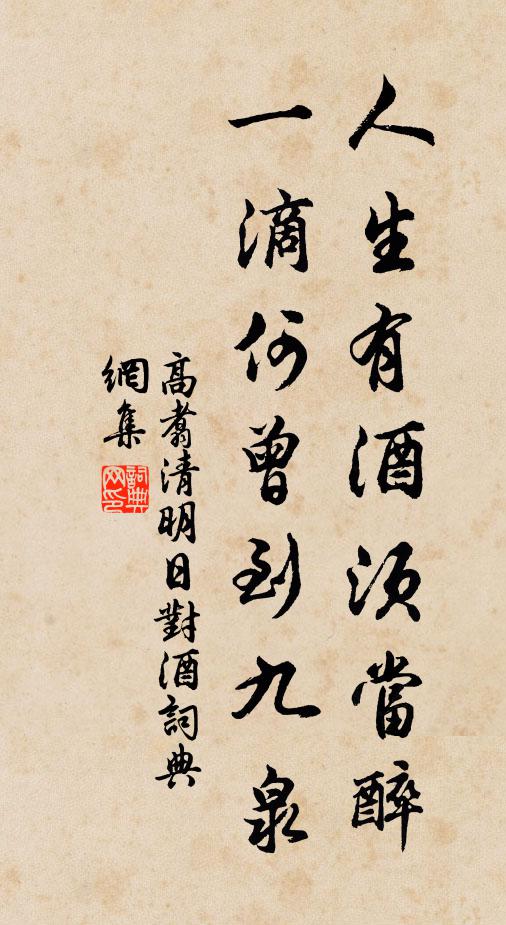 人生有酒須當醉
一滴何曾到九泉
高翥清明日對酒詞典
網集
詞典
网印